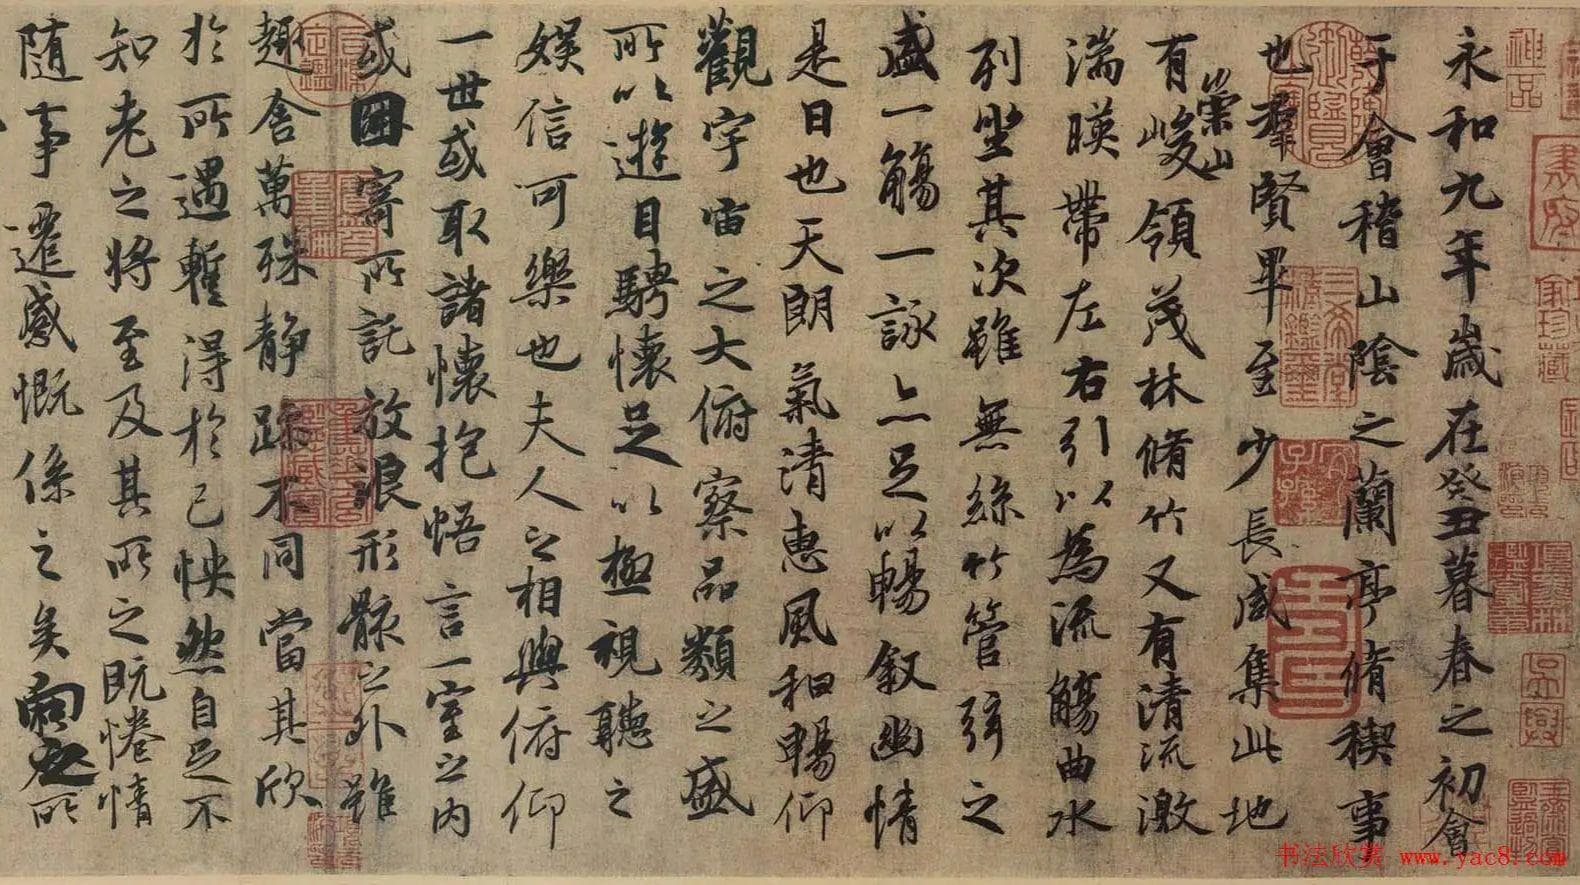 永和九年歲在癸丑暮春之初會
于會稽山陰之蘭亭脩稧事
也羣賢畢至少長咸集此地
有崇山峻領茂林脩竹又有清流激
湍暎帶左右引以為流觴曲水
列坐其次雖無絲竹管弦之
盛一觴一詠亦足以暢叙幽情
是日也天朗氣清惠風和暢仰
觀宇宙之大俯察品類之盛
所以遊目騁懷足以極視聽之
娛信可樂也夫人之相與俯仰
一世或取諸懷抱悟言一室之內
或因寄所託放浪形骸之外雖
趣舍萬殊靜躁不同當其欣
於所遇蹔得於己怏然自足不
知老之將至及其所之既惓情
隨事遷感慨係之矣向之所
神品
三希堂精鑑璽
宜子孫
书法欣赏 www.yac8.com